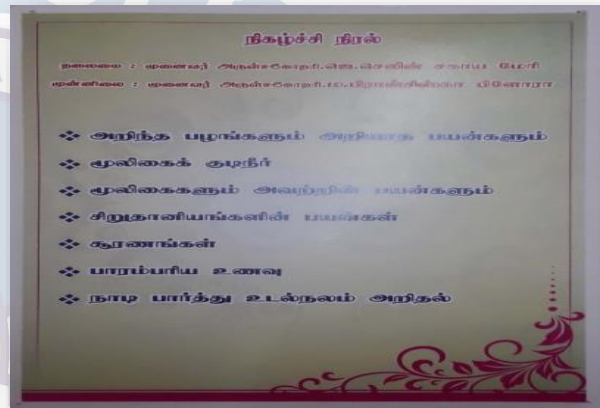 நிகழ்ச்சி நிரல்
தலைமை : முனைவர் அருள்சகோதரி.ஜெ.செலின் சகாய மேரி
முன்னிலை : முனைவர் அருள்சகோதரி.ம.பிரான்சிஸ்கா பிளோரா
❖ அறிந்த பழங்களும் அறியாத பயன்களும்
❖ மூலிகைக் குடிநீர்
❖ மூலிகைகளும் அவற்றின் பயன்களும்
❖ சிறுதானியங்களின் பயன்கள்
❖ சூரணங்கள்
❖ பாரம்பரிய உணவு
❖ நாடி பார்த்து உடல்நலம் அறிதல்